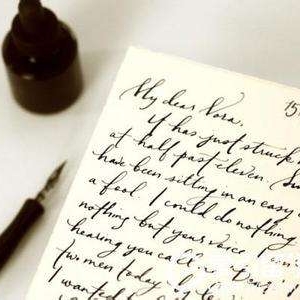 My dear Nora,
15
It has just struck
at half past eleven.
have been sitting in an easy
a fool. I could do nothing
nothing but your voice. I
hearing you call "Dear"
two men today by
I wanted